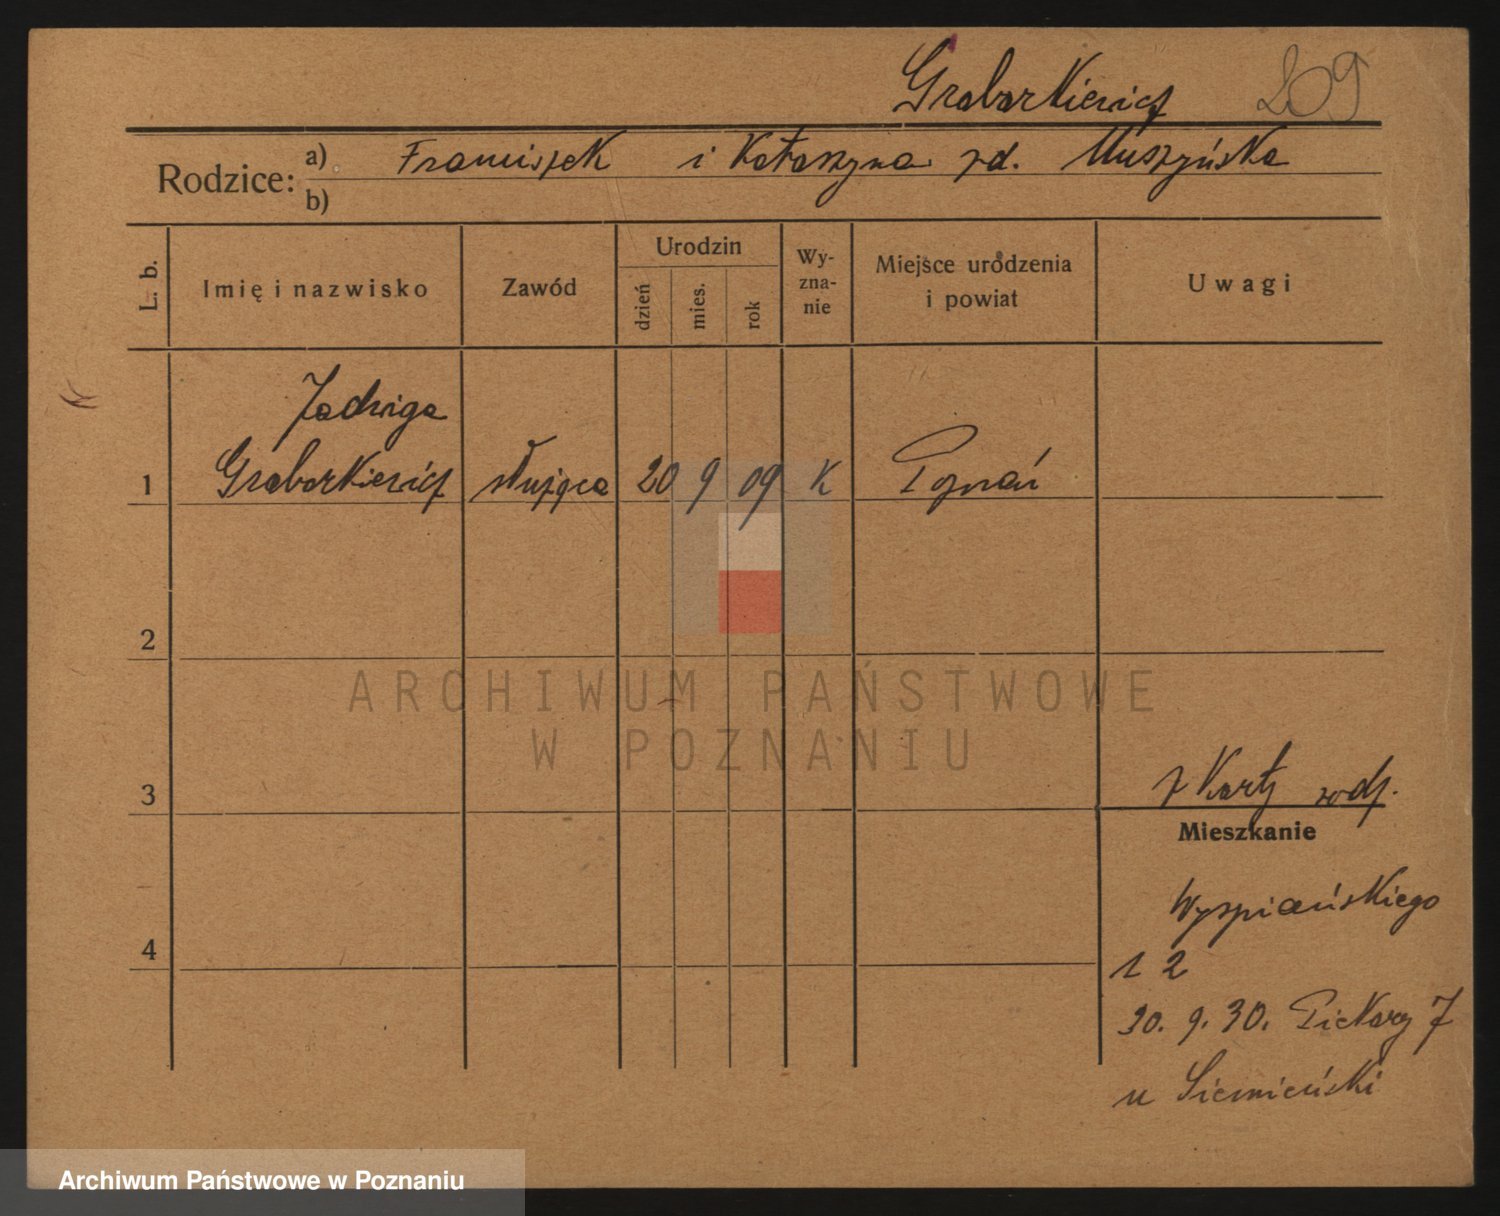 Grabarkiewicz 209
Rodzice: a) Franciszek i Katarzyna zd. Muszyńska
b)
L. b. Imię i nazwisko Zawód Urodzin dzień mies. rok Wyznanie Miejsce urodzenia i powiat Uwagi
Jadwiga
1 Grabarkiewicz służąca 20 9 09 K Poznań
2
ARCHIWUM PAŃSTWOWE
W POZNANIU
3 z Karty rodz.
Mieszkanie
Wyspiańskiego
4 12
30. 9. 30. Piekary 7
u Siemieński
Archiwum Państwowe w Poznaniu